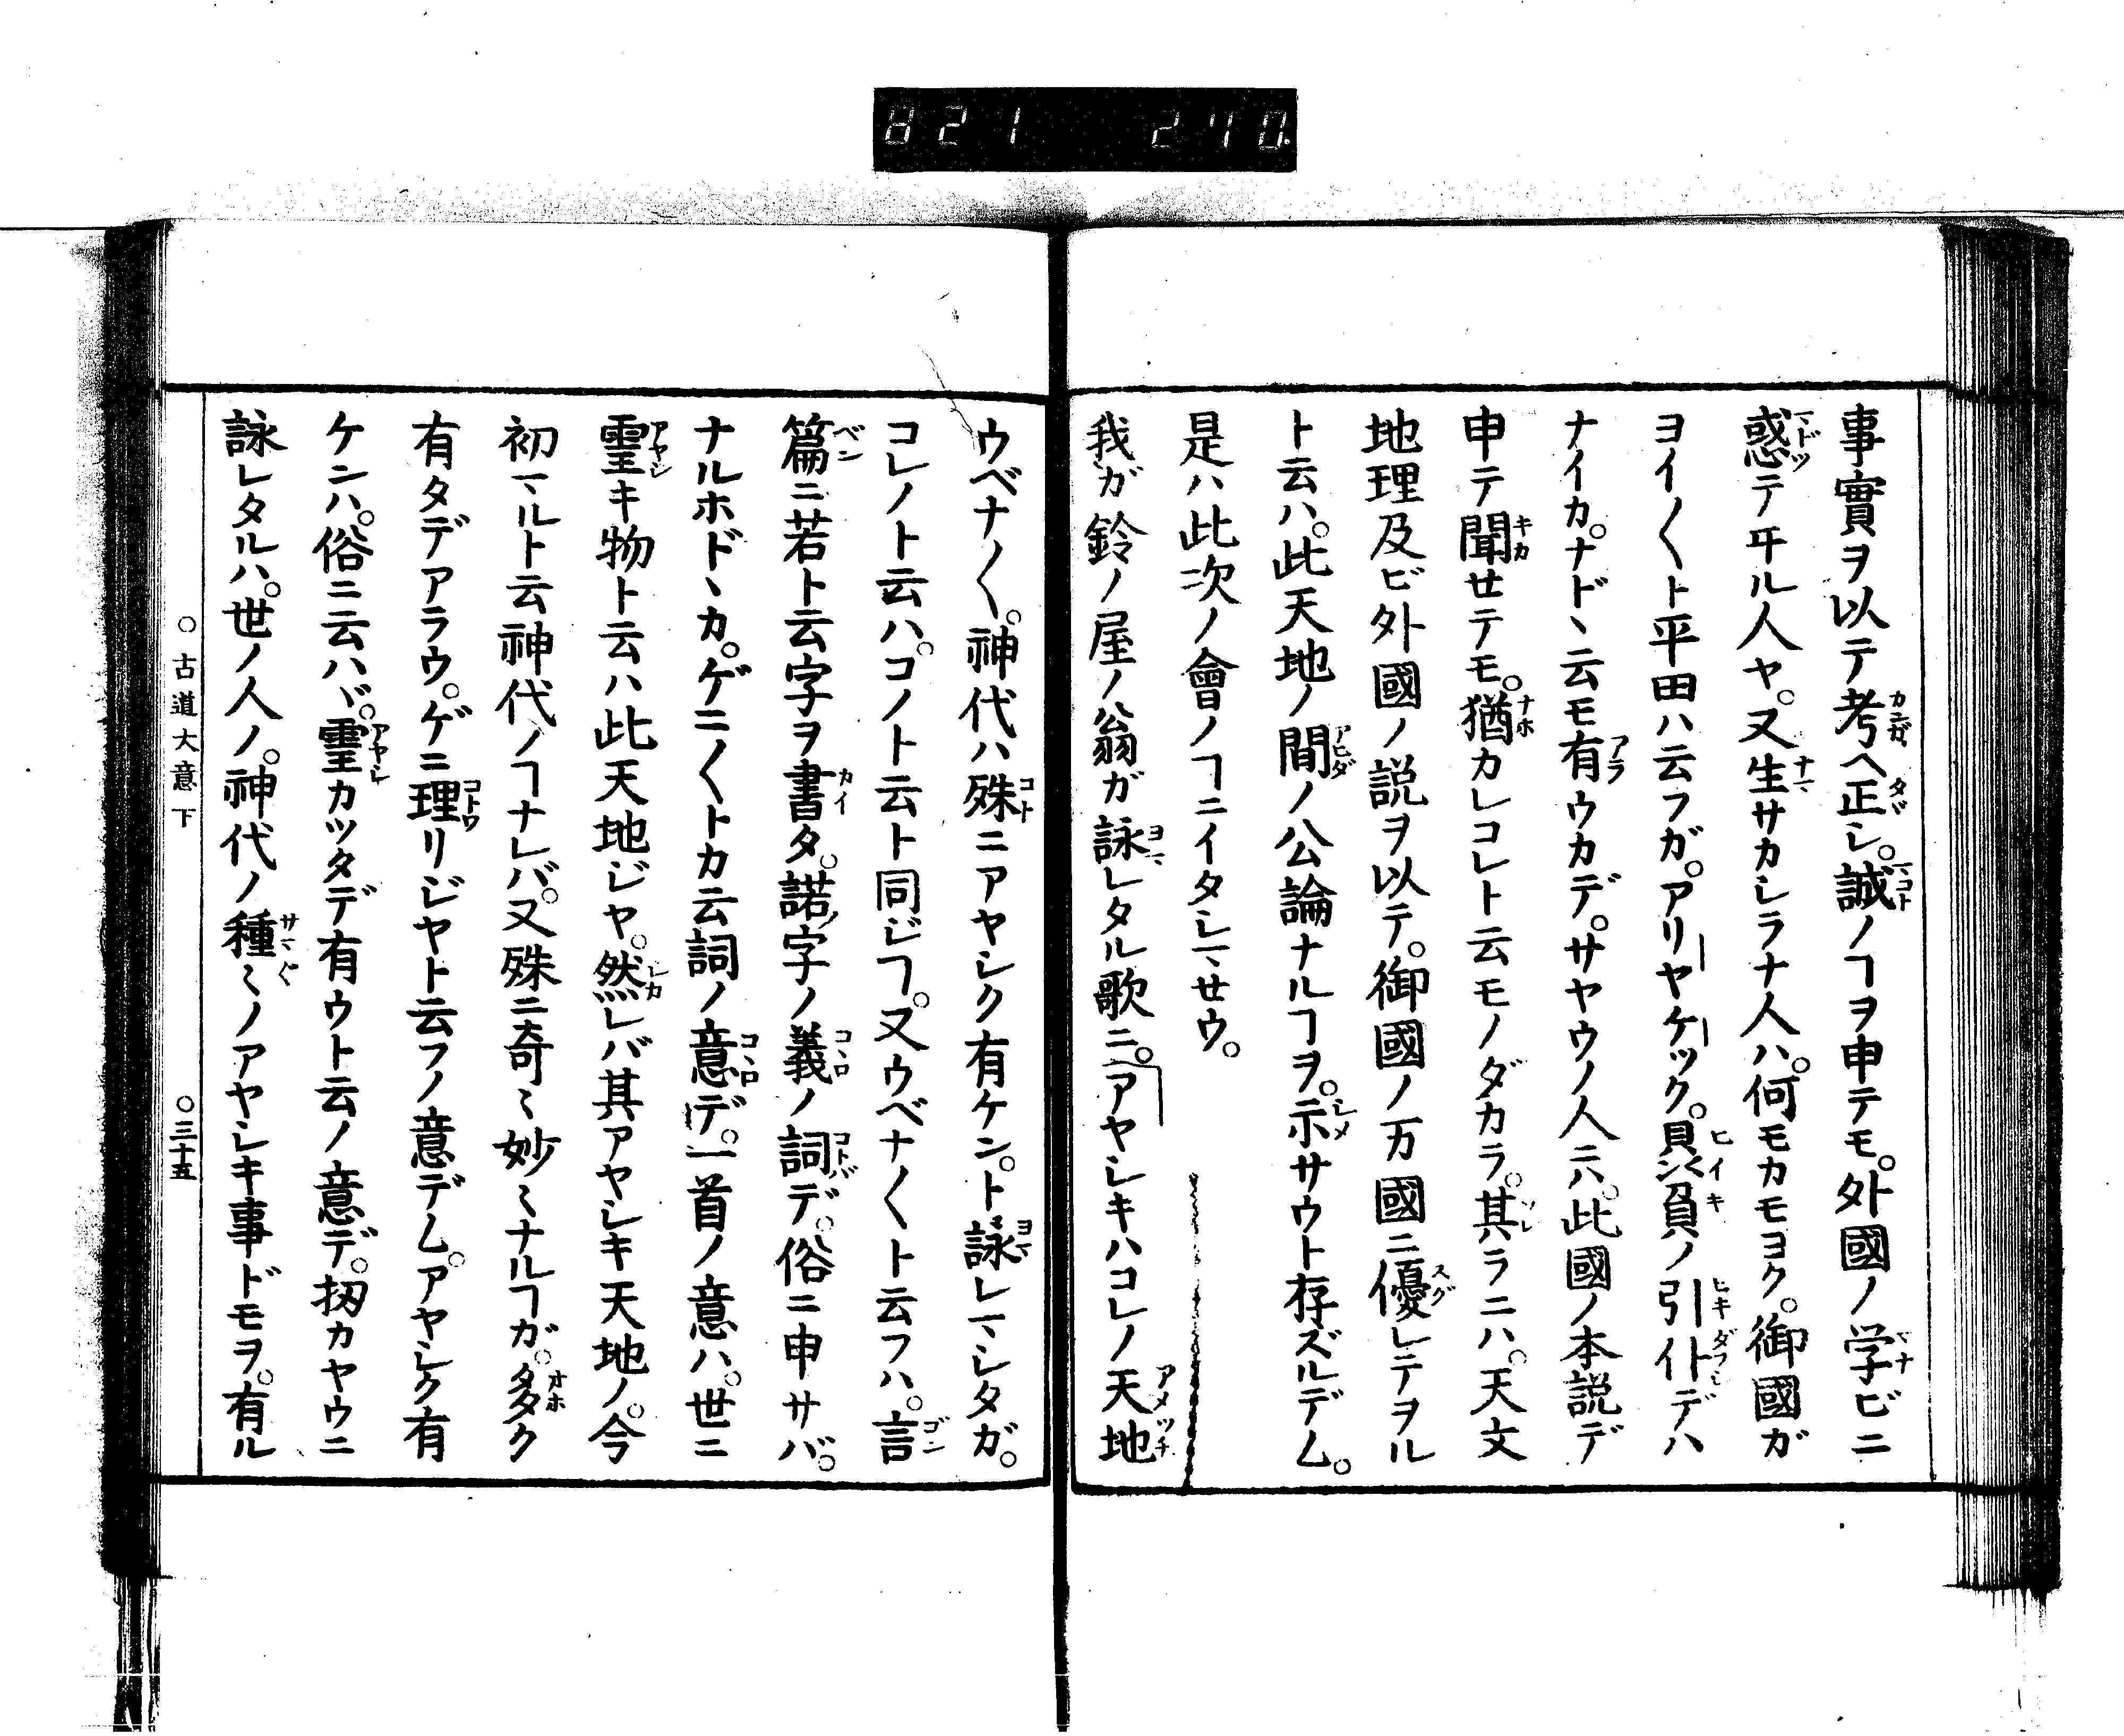 821 240.
事實ヲ以テ考ヘ正シ。誠ノヿヲ申テモ。外國ノ学ビニ
惑テヰル人ヤ。又生サカシラナ人ハ。何モカモヨク。御國ガ
ヨイ〳〵ト平田ハ云フガ。アリヤケツク。贔負ノ引仆デハ
ナイカ。ナドヽ云モ有ウカデ。サヤウノ人ニハ。此國ノ本説デ
申テ聞せテモ。猶カレコレト云モノダカラ。其ラニハ。天文
地理及ビ外國ノ説ヲ以テ。御國ノ万國ニ優レテヲル
ト云ハ。此天地ノ間ノ公論ナルヿヲ。示サウト存ズルデム。
是ハ此次ノ會ノヿニイタしマせウ。
我ガ鈴ノ屋ノ翁ガ詠レタル歌ニ。「アヤシキハコレノ天地
ウベナ〳〵。神代ハ殊ニアヤシク有ケン。ト詠レマシタガ。
コレノト云ハ。コノト云ト同ジヿ。又ウベナ〳〵ト云フハ。言
篇ニ若ト云字ヲ書タ。諾ノ字ノ義ノ詞デ。俗ニ申サバ。
ナルホドヽカ。ゲニ〳〵トカ云詞ノ意デ。一首ノ意ハ。世ニ
霊キ物ト云ハ此天地ジヤ。然レバ其アヤシキ天地ノ。今
初マルト云神代ノヿナレバ。又殊ニ奇〻妙〻ナルヿガ。多ク
有タデアラウ。ゲニ理リジヤト云フノ意デム。アヤシク有
ケンハ。俗ニ云ハヾ。霊カツタデ有ウト云ノ意デ。扨カヤウニ
詠レタルハ。世ノ人ノ。神代ノ種〻ノアヤシキ事ドモヲ。有ル
○古道大意下 ○三十五